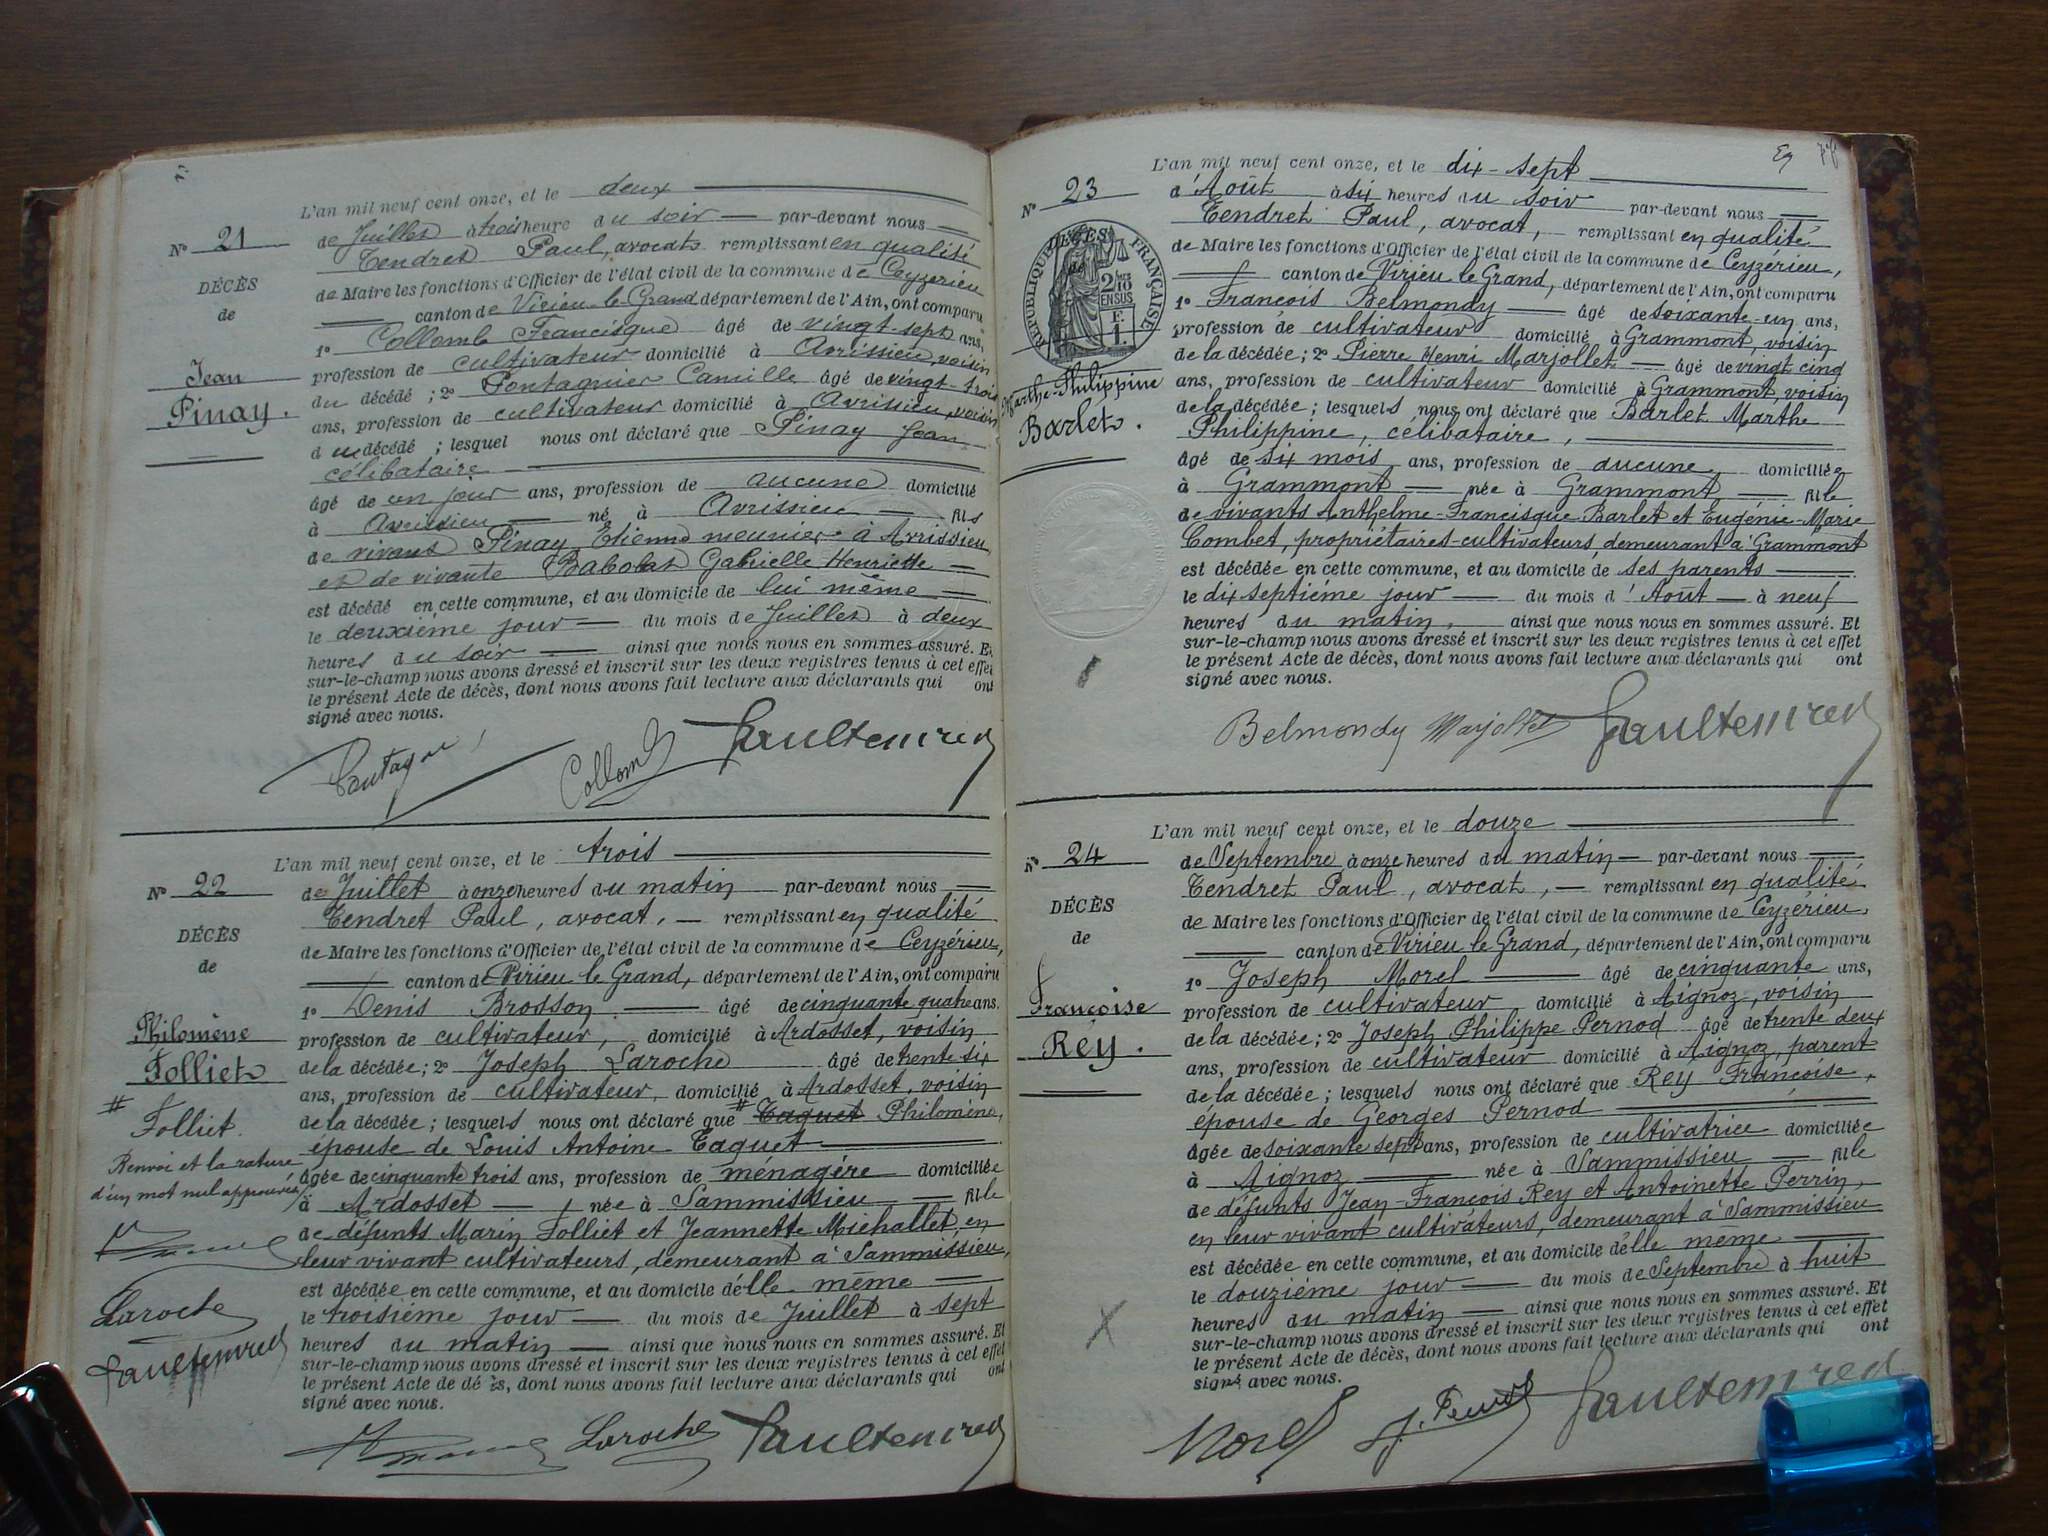 L'an mil neuf cent onze, et le deux
Nº 21
de Juillet à trois heure du soir par-devant nous
Tendret Paul, avocat remplissant en qualité
DÉCÈS
de Maire les fonctions d'Officier de l'état civil de la commune de Ceyzérieu
de
canton de Virieu-le-Grand département de l'Ain, ont comparu
1º Collomb Francisque âgé de vingt-sept ans,
Jean
profession de cultivateur domicilié à Avrissieu, voisin
Pinay.
du décédé ; 2º Pontagnier Camille âgé de vingt-trois
ans, profession de cultivateur domicilié à Avrissieu, voisin
du décédé ; lesquel nous ont déclaré que Pinay Jean
célibataire
âgé de un jour ans, profession de aucune domicilié
à Avrissieu né à Avrissieu fils
de vivant Pinay Etienne meunier à Avrissieu
et de vivante Babolat Gabrielle Henriette
est décédé en cette commune, et au domicile de lui même
le deuxième jour du mois de Juillet à deux
heures du soir ainsi que nous nous en sommes assuré. Et
sur-le-champ nous avons dressé et inscrit sur les deux registres tenus à cet effet
le présent Acte de décès, dont nous avons fait lecture aux déclarants qui ont
signé avec nous.
Collomb Paultendret
L'an mil neuf cent onze, et le trois
Nº 22
de Juillet à onze heures du matin par-devant nous
Tendret Paul, avocat, remplissant en qualité
DÉCÈS
de Maire les fonctions d'Officier de l'état civil de la commune de Ceyzérieu,
de
canton de Virieu le Grand, département de l'Ain, ont comparu
1º Denis Brosson âgé de cinquante quatre ans,
Philomène
profession de cultivateur, domicilié à Ardosset, voisin
Folliet
de la décédée ; 2º Joseph Laroche âgé de trente six
ans, profession de cultivateur, domicilié à Ardosset, voisin
# Folliet.
de la décédée ; lesquels nous ont déclaré que # Taquet Philomène,
épouse de Louis Antoine Taquet
Renvoi et la rature
d'un mot nul approuvés
âgée de cinquante trois ans, profession de ménagère domiciliée
à Ardosset née à Sammissieu fille
de défunts Marin Folliet et Jeannette Michallet, en
leur vivant cultivateurs, demeurant à Sammissieu,
est décédée en cette commune, et au domicile d'elle même
Laroche
le troisième jour du mois de Juillet à sept
Paultendret
heures du matin ainsi que nous nous en sommes assuré. Et
sur-le-champ nous avons dressé et inscrit sur les deux registres tenus à cet effet
le présent Acte de décès, dont nous avons fait lecture aux déclarants qui ont
signé avec nous.
Laroche Paultendret
L'an mil neuf cent onze, et le dix-sept
Nº 23
d'Août à six heures du soir par-devant nous
Tendret Paul, avocat, remplissant en qualité
RÉPUBLIQUE FRANÇAISE
DÉCÈS
de
2/10 EN SUS
F. 1.
de Maire les fonctions d'Officier de l'état civil de la commune de Ceyzérieu,
canton de Virieu le Grand, département de l'Ain, ont comparu
1º François Belmondy âgé de soixante-un ans,
profession de cultivateur domicilié à Grammont, voisin
de la décédée ; 2º Pierre Henri Marjollet âgé de vingt cinq
Marthe-Philippine
Barlet.
ans, profession de cultivateur domicilié à Grammont, voisin
de la décédée ; lesquels nous ont déclaré que Barlet Marthe
Philippine, célibataire,
âgé de six mois ans, profession de aucune domiciliée
à Grammont née à Grammont fille
de vivants Anthelme-Francisque Barlet et Eugénie-Marie
Combet, propriétaires-cultivateurs, demeurant à Grammont
est décédée en cette commune, et au domicile de ses parents
le dix septième jour du mois d'Août à neuf
heures du matin, ainsi que nous nous en sommes assuré. Et
sur-le-champ nous avons dressé et inscrit sur les deux registres tenus à cet effet
le présent Acte de décès, dont nous avons fait lecture aux déclarants qui ont
signé avec nous.
Belmondy Marjollet Paultendret
L'an mil neuf cent onze, et le douze
Nº 24
de Septembre à onze heures du matin par-devant nous
Tendret Paul, avocat, remplissant en qualité
DÉCÈS
de Maire les fonctions d'Officier de l'état civil de la commune de Ceyzérieu,
de
canton de Virieu le Grand, département de l'Ain, ont comparu
1º Joseph Morel âgé de cinquante ans,
Françoise
profession de cultivateur domicilié à Aignoz, voisin
Rey.
de la décédée ; 2º Joseph Philippe Pernod âgé de trente deux
ans, profession de cultivateur domicilié à Aignoz, parent
de la décédée ; lesquels nous ont déclaré que Rey Françoise,
épouse de Georges Pernod
âgée de soixante sept ans, profession de cultivatrice domiciliée
à Aignoz née à Sammissieu fille
de défunts Jean-François Rey et Antoinette Perrin,
en leur vivant cultivateurs, demeurant à Sammissieu
est décédée en cette commune, et au domicile d'elle même
le douzième jour du mois de Septembre à huit
heures du matin ainsi que nous nous en sommes assuré. Et
sur-le-champ nous avons dressé et inscrit sur les deux registres tenus à cet effet
le présent Acte de décès, dont nous avons fait lecture aux déclarants qui ont
signé avec nous.
Morel J. Pernod Paultendret